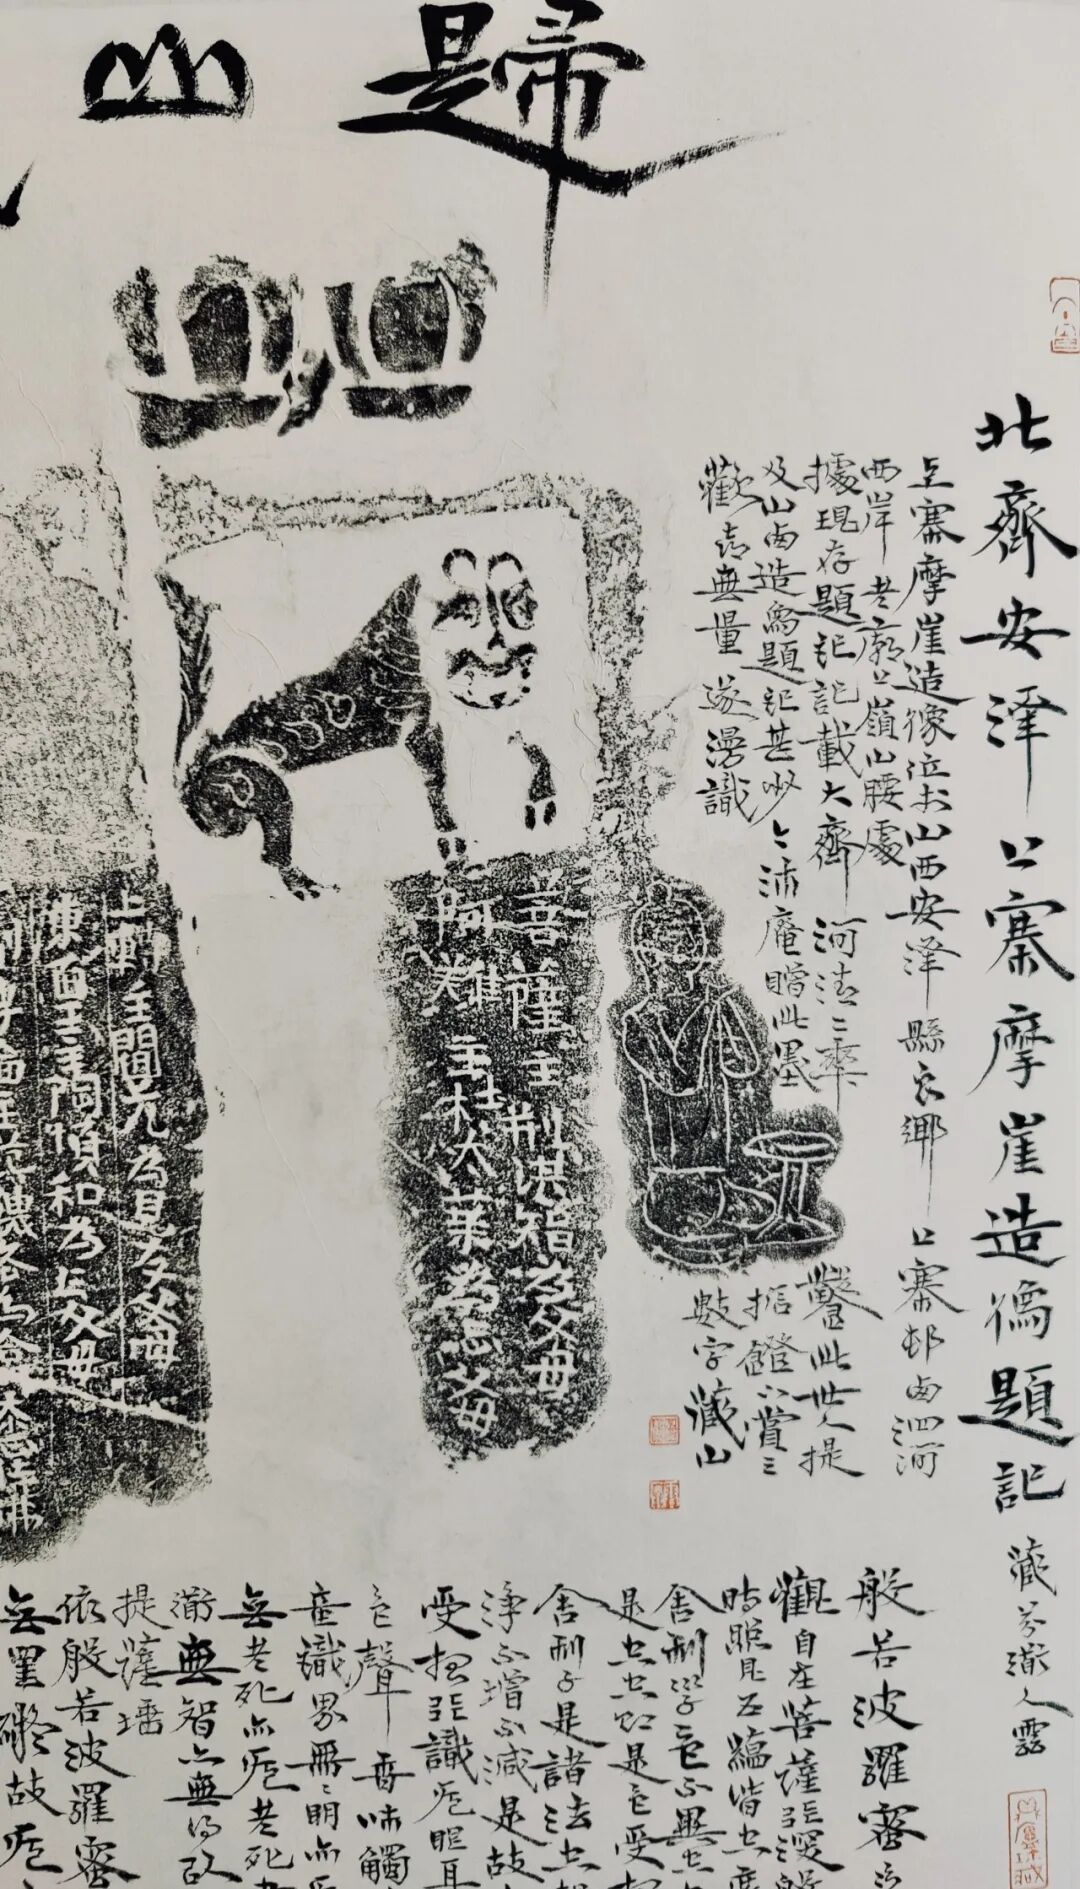 歸
山
北齊安澤上寨摩崖造像題記
上寨摩崖造像位於山西安澤縣良鄉上寨邨西泗河
西岸老廟上嶺山腰處
據現存題記記載大齊河清二年鑿此世人提
及山西造像題記甚少今沛庵贈此墨
歡喜無量遂漫識數字藏山
菩薩主荆洪智为父母
阿難主杜伏業為忘父母
上轉主閻元为見夕父母
東面主陶順和为上父母
般若波羅蜜
觀自在菩薩行深般
時照見五蘊皆空度
舍利子色不異空
是空空即是色受想
舍利子是諸法空相
淨不增不減是故
受想行識无眼耳
色聲香味觸
意識界無無明亦
無老死亦无老死
無智亦無得以
提薩埵
依般若波羅蜜
無罣礙故无